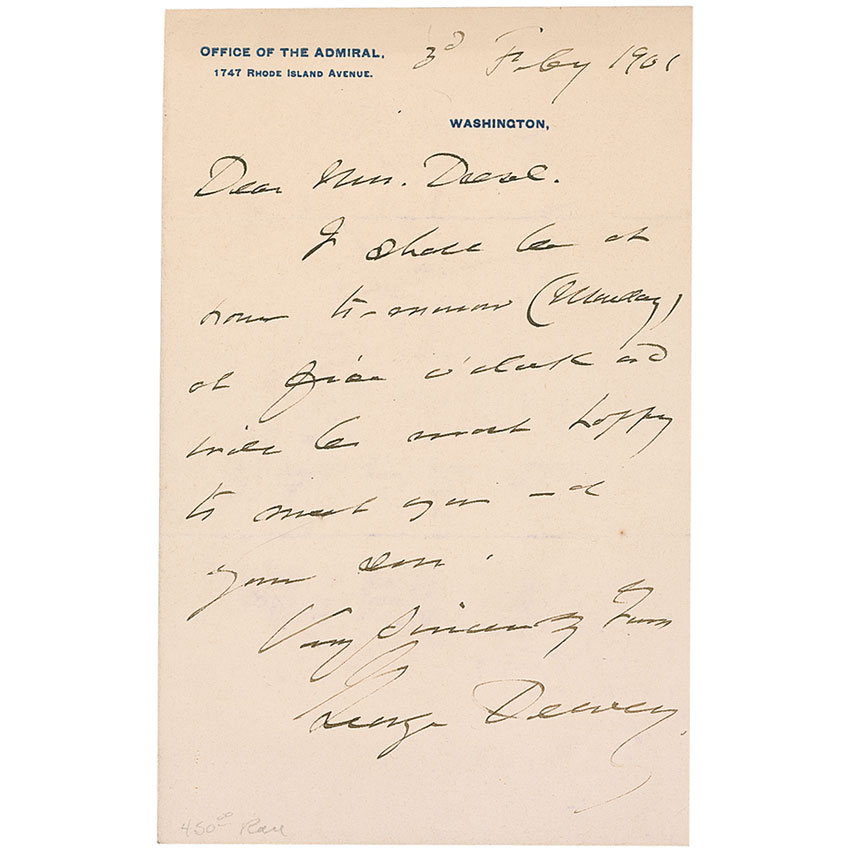 OFFICE OF THE ADMIRAL,
1747 RHODE ISLAND AVENUE.
3d Feby 1901
WASHINGTON,
Dear Mrs.
I shall be at
home to-morrow (Monday)
at five o'clock and
will be most happy
to meet you and
your son.
Very Sincerely Yours
George Dewey
450.00 Rare